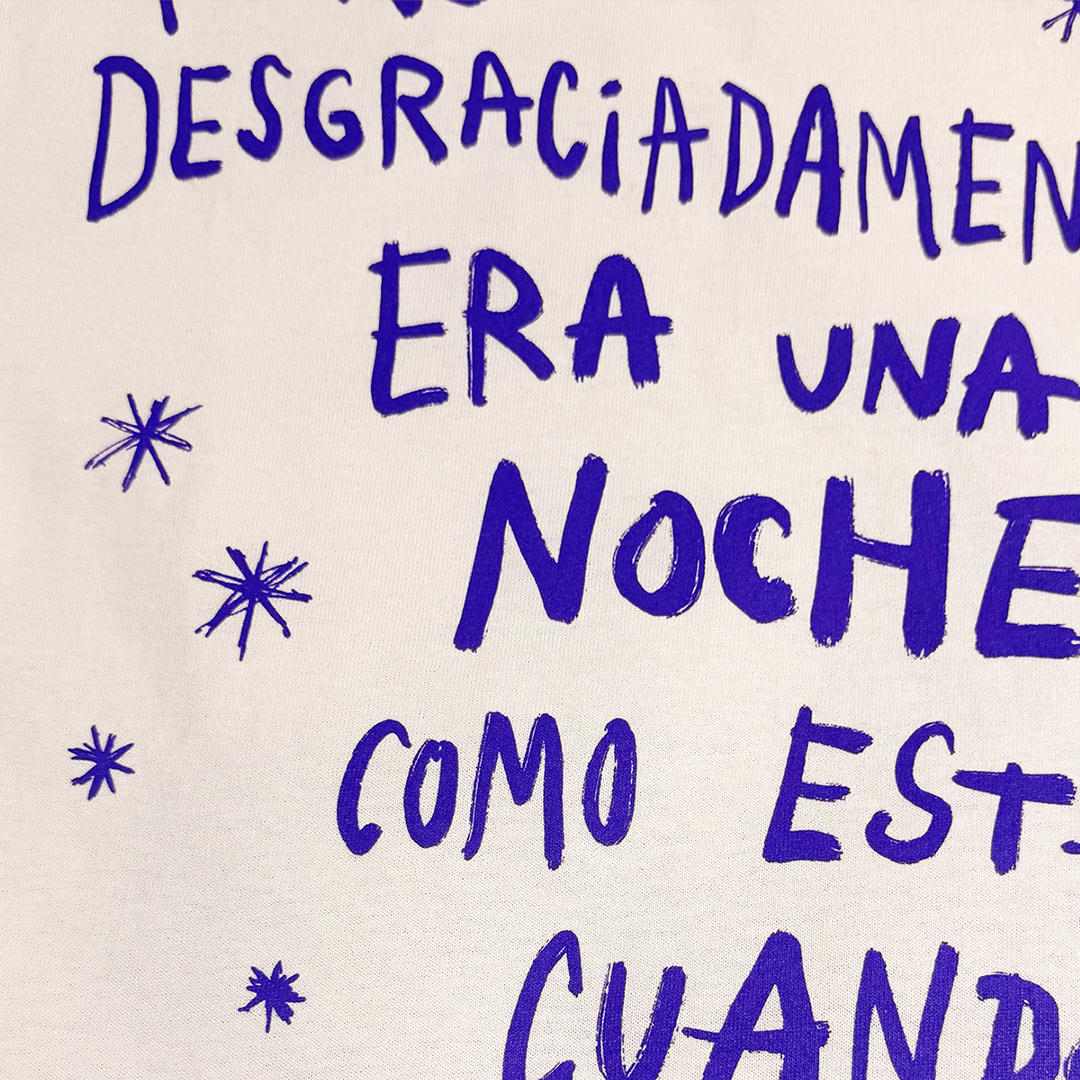 DESGRACIADAMEN
ERA UNA
NOCHE
COMO EST
CUAND